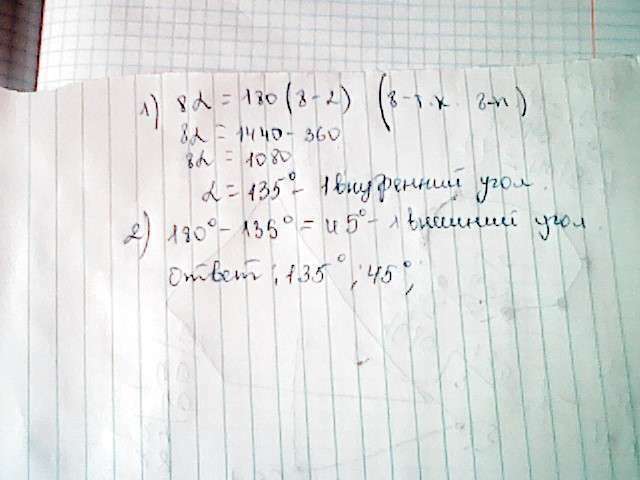 1) 8α = 180 (8-2) (8-т.к. 8-к)
8α = 1440 - 360
8α = 1080
α = 135° - 1 внутренний угол.
2) 180° - 135° = 45° - 1 внешний угол
Ответ: 135°; 45°;